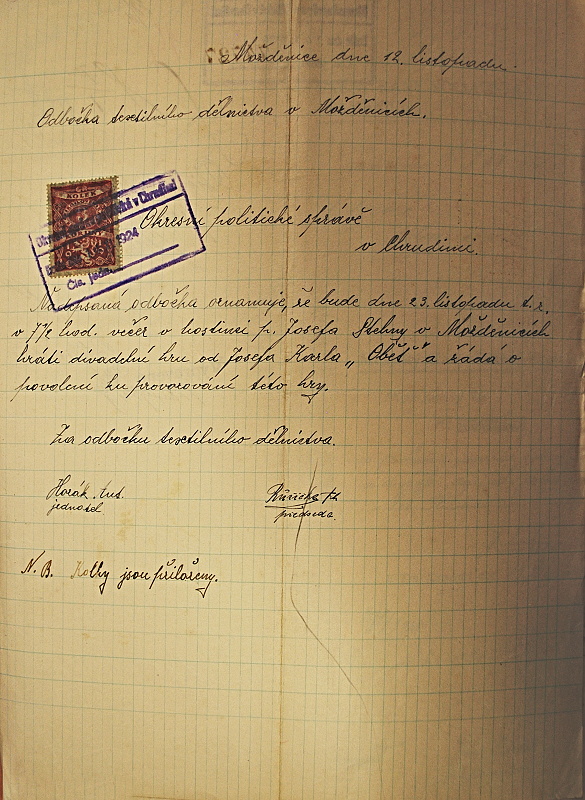 Možděnice dne 12. listopadu.
Odbočka textilního dělnictva v Možděnicích.
KOLEK
v Chrudimi
1924
Čís. jedn.
Okresní politické správě
v Chrudimi.
Nadepsaná odbočka oznamuje, že bude dne 23. listopadu t. r.
v 7 1/2 hod. večer v hostinci p. Josefa Stehny v Možděnicích
hráti divadelní hru od Josefa Karla „Oběť" a žádá o
povolení ku provozování této hry.
Za odbočku textilního dělnictva.
Horák Ant.
jednatel.
předseda.
N. B. Kolky jsou přiloženy.